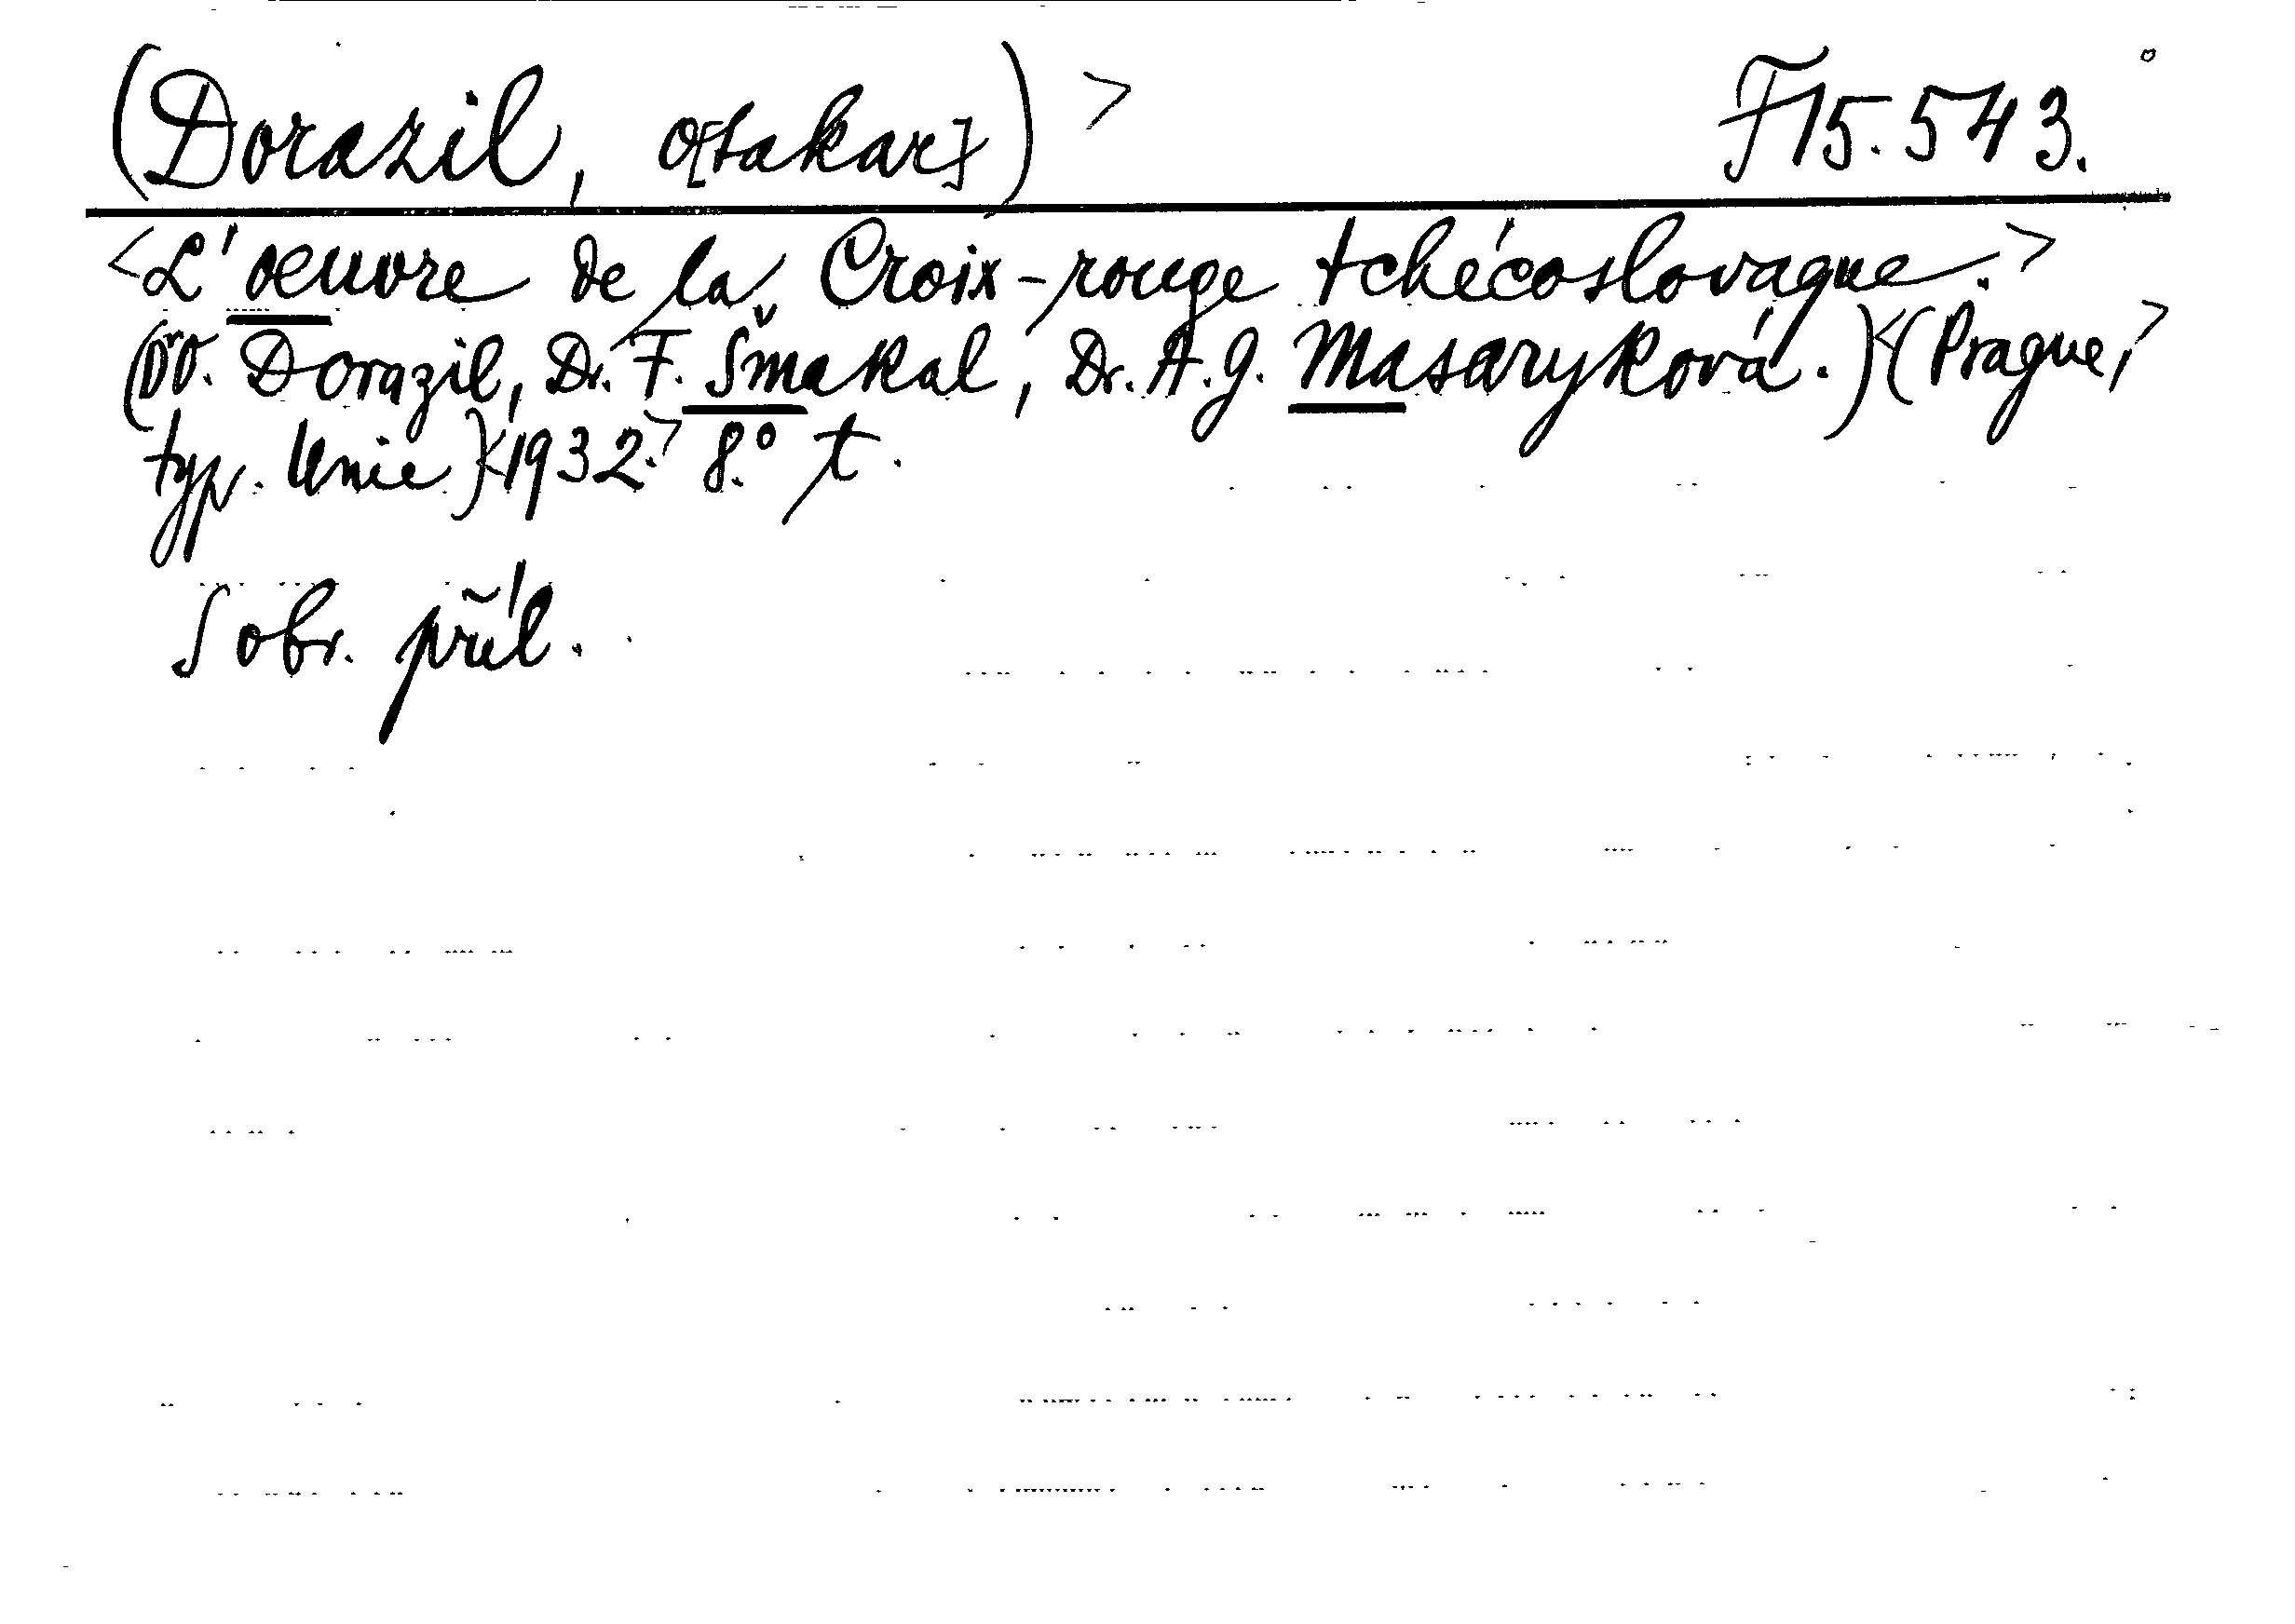 (Dorazil, O[takar]) > F 15.543.
<L'oeuvre de la Croix-rouge tchécoslovaque.>
(Dr O. Dorazil, Dr. F. Šmakal, Dr. A. G. Masaryková.)<(Prague,>
typ. Unie)<1932.> 8.° t.
S obr. příl.